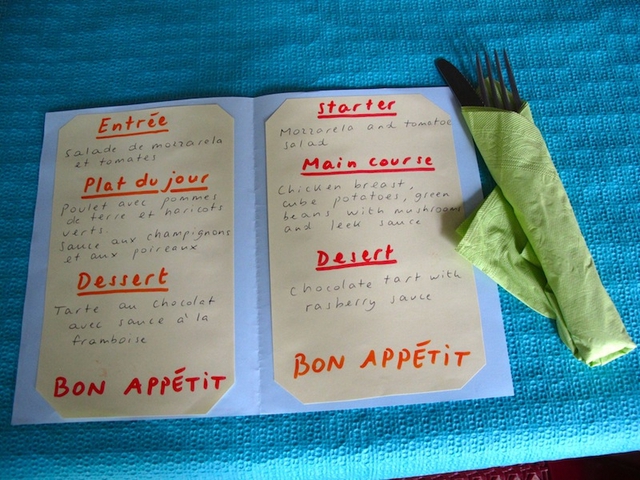 Entrée
Salade de mozzarela
et tomates
Plat du jour
Poulet avec pommes
de terre et haricots
verts.
Sauce aux champignons
et aux poireaux
Dessert
Tarte au chocolat
avec sauce à la
framboise
BON APPÉTIT
Starter
Mozzarela and tomatoe
salad
Main course
Chicken breast,
cube potatoes, green
beans with mushrooms
and leek sauce
Desert
Chocolate tart with
rasberry sauce
BON APPÉTIT